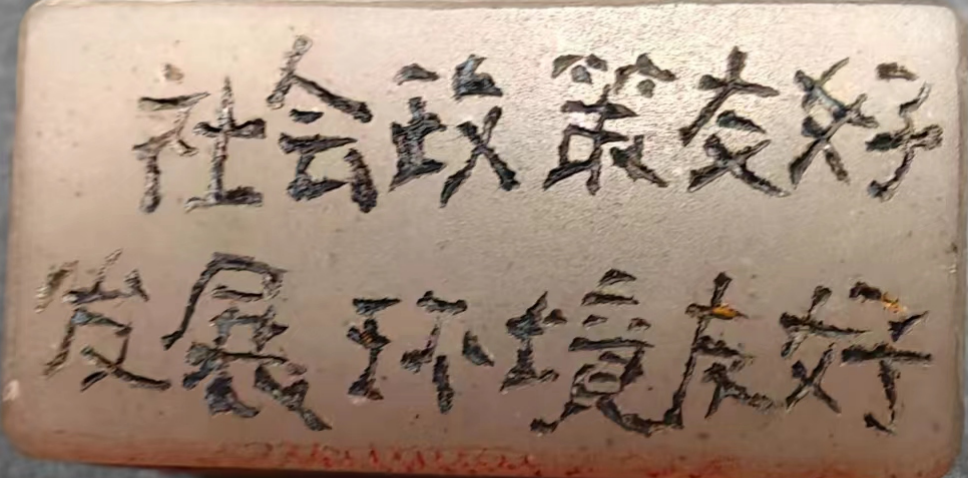 社会政策友好
发展环境友好